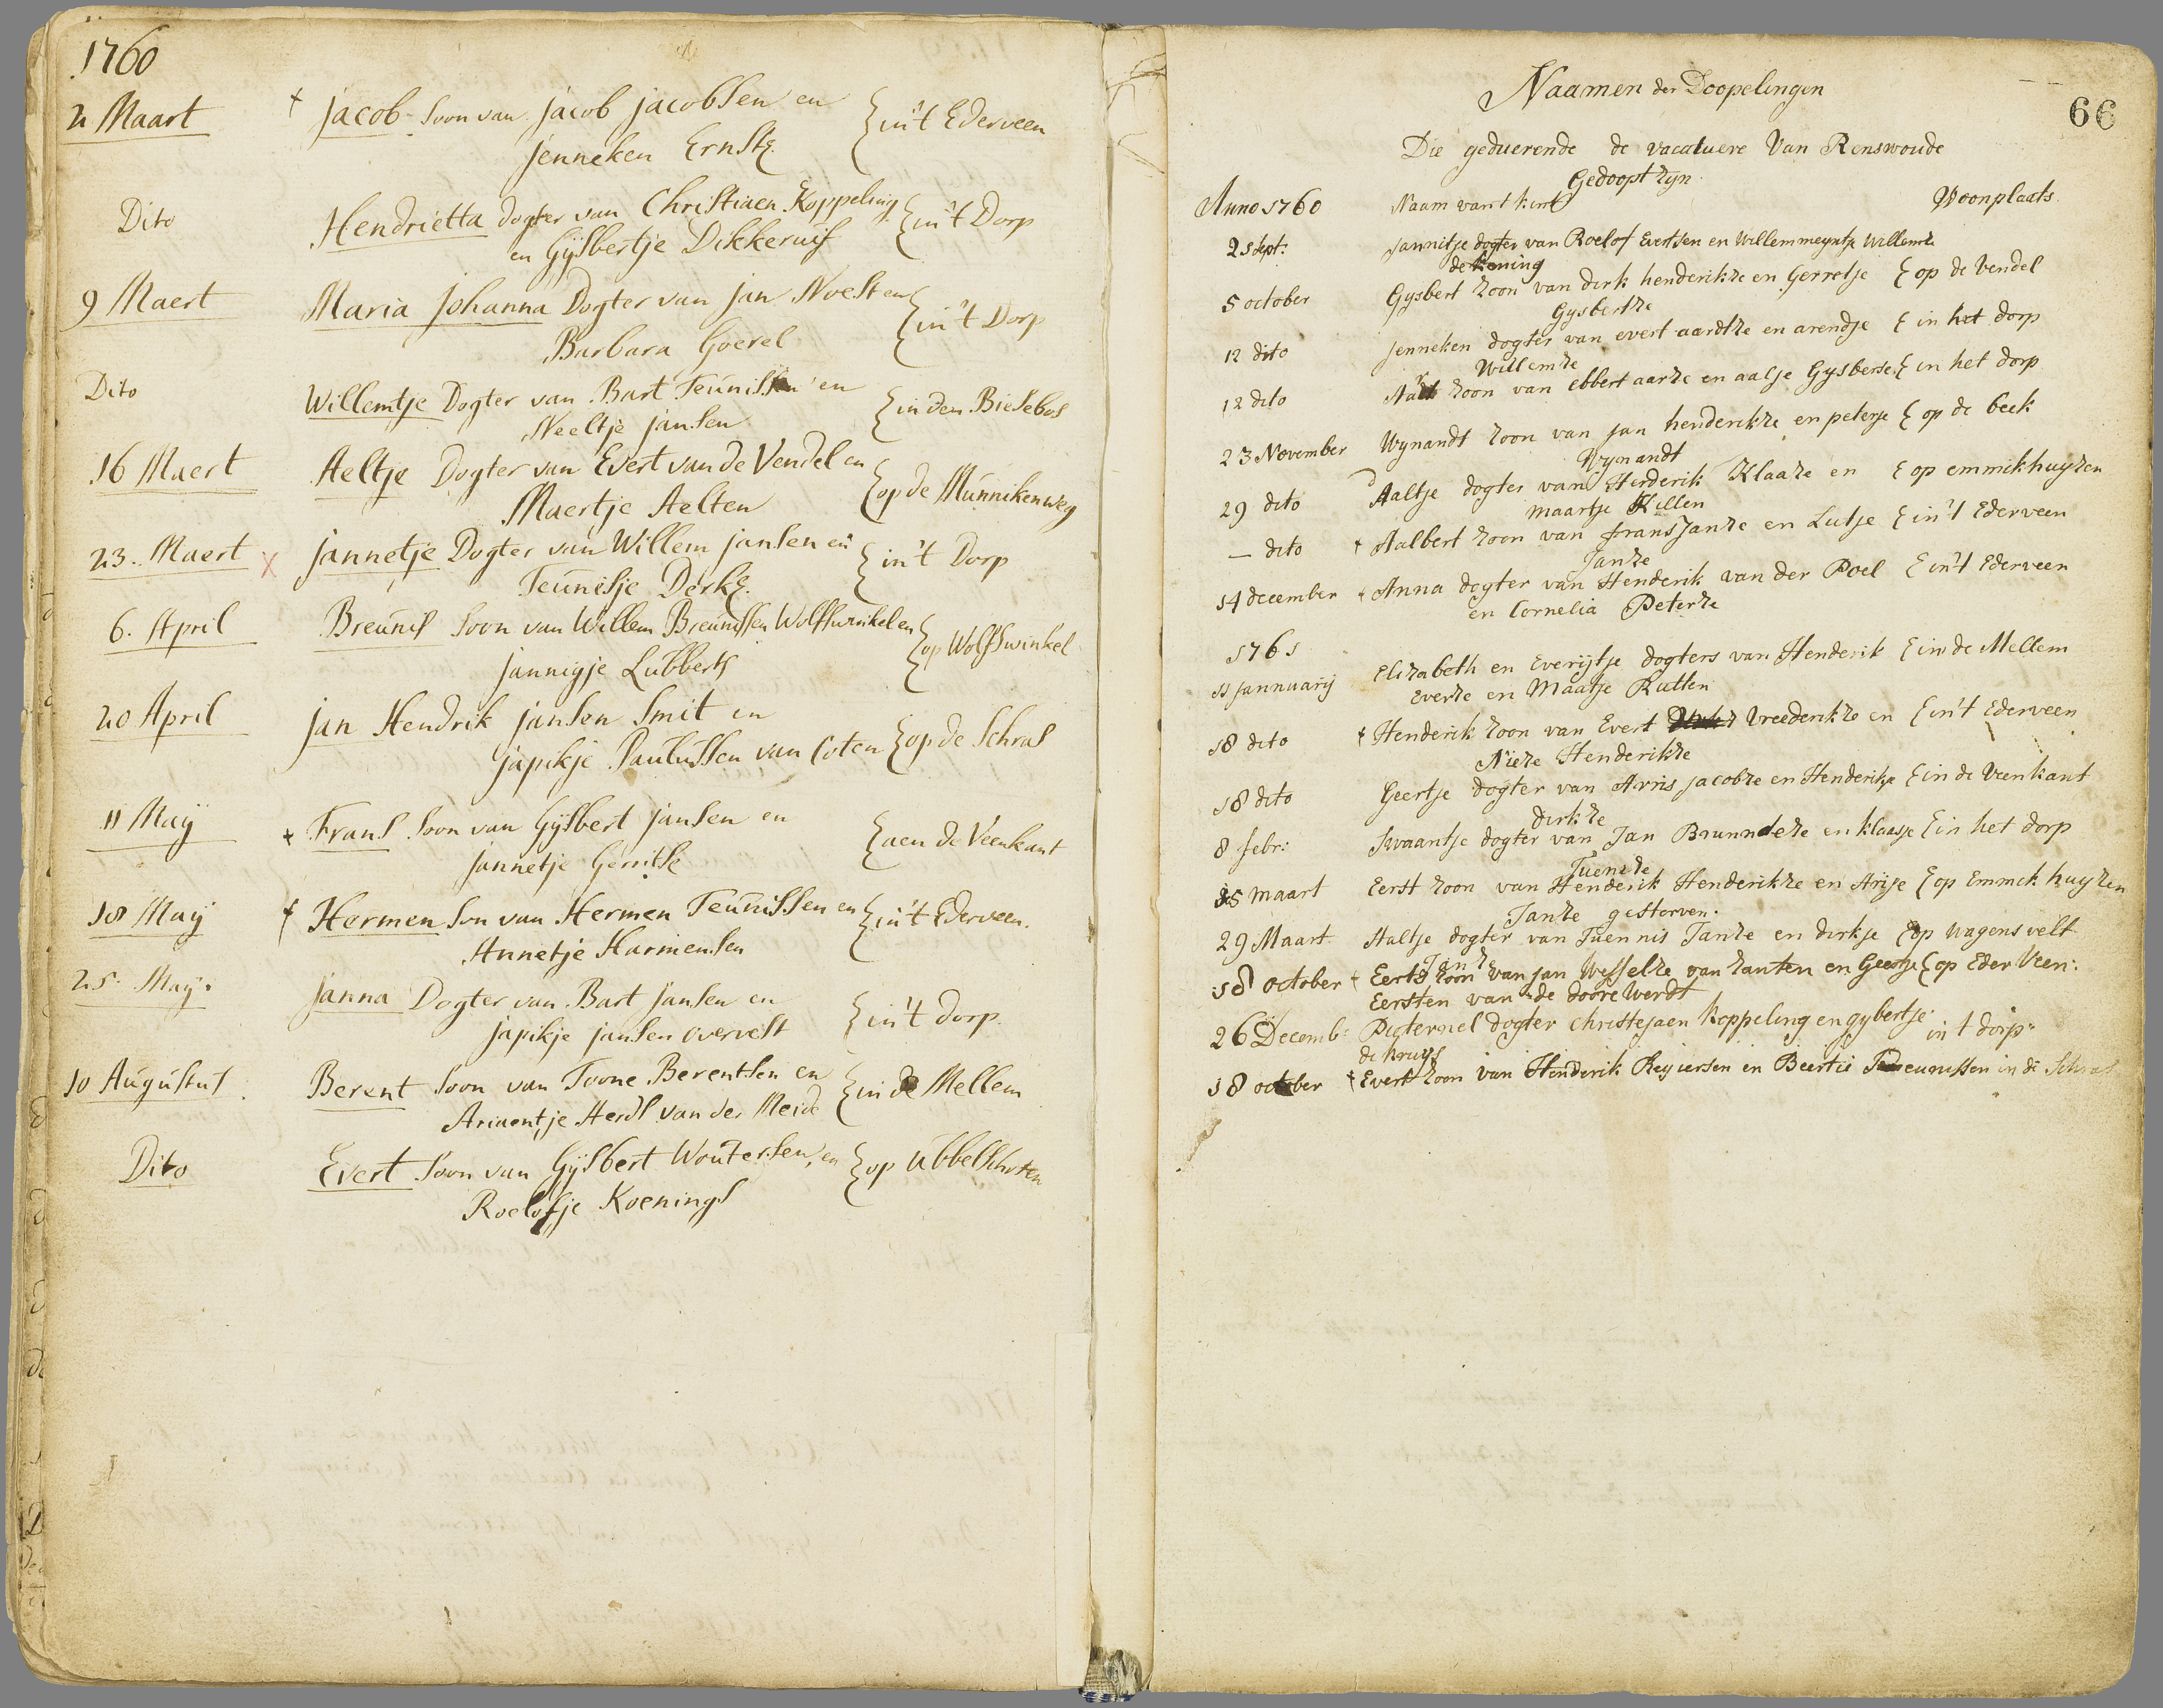 1760
2 Maart † Jacob Soon van Jacob Jacobsen en { in 't Ederveen
Jenneken Ernstz.
Dito Hendrietta dogter van Christiaen Koppeling { in 't Dorp
en Gijsbertje Dikkeruis
9 Maert Maria Johanna Dogter van Jan Noest en { in 't Dorp
Barbara Goerel
Dito Willemtje Dogter van Bart Teunissen en { in den Biesebos
Neeltje Jansen
16 Maert Aeltje Dogter van Evert van de Vendel en { op de Munnikenweg
Maertje Aelten
23. Maert x Jannetje Dogter van Willem Jansen en { in 't Dorp
Teunisje Derkz.
6. April Breunis Soon van Willem Breunissen Wolfswinkel en { op Wolfswinkel
Jannigje Lubberts
20 April Jan Hendrik Jansen Smit en { op de Schras
Japikje Paulussen van Coten
11 Maij † Frans Soon van Gijsbert Jansen en { aen de Veenkant
Jannetje Gerritse
18 Maij † Hermen Son van Hermen Teunissen en { in 't Ederveen.
Annetje Harmensen
25. Maij. Janna Dogter van Bart Jansen en { in 't dorp.
Japikje Jansen overvest
10 Augustus Berent Soon van Toone Berentsen en { in de Mellem
Ariaentje Herds van der Meide
Dito Evert Soon van Gijsbert Woutersen, en { op Ubbelschoten
Roelofje Koenings
Naamen der Doopelingen
66
Die geduerende de vacatuere Van Renswoude
Gedoopt zyn
Anno 1760 Naam van t kint Woonplaats
21 sept: Jannitje dogter van Roelof Evertsen en Willemmeyntje Willemze
de Koning
5 october Gysbert zoon van dirk henderikze en Gerretje { op de Vendel
Gysbertze
12 dito Jenneken dogter van evert aardtze en arendje { in het dorp
Willemze
12 dito zoon van ebbert aarze en aalje Gysberse { in het dorp
23 November Wynandt zoon van jan henderikze en peterje { op de beek
Wynandt
29 dito Aaltje dogter van Henderik Klaaze en { op emmikhuyzen
maartje Killen
— dito † Aalbert zoon van frans Janze en Lutje { in 't Ederveen
Janze
14 december † Anna dogter van Henderik van der Poel { in 't Ederveen
en Cornelia Peterze
1761
11 jannuarij Elizabeth en Everijtje dogters van Henderik { in de Mellem
Everze en Maatje Rutten
18 dito † Henderik zoon van Evert Vreederikze en { in 't Ederveen
Nieze Henderikze
18 dito Geertje dogter van Arris jacobze en Henderikje { in de Veenkant
dirkze
8 febr: Swaantje dogter van Jan Brunndeze en klaasje { in het dorp
Tuenze
25 maart Eerst zoon van Henderik Henderikze en Arije { op Emmek huyzen
Janze gestorven.
29 Maart Aaltje dogter van Tuennis Janze en dirkje { op wagensvelt
Janz
18 october † Eerts zoon van jan Wesselze van zanten en Geertje { op Eder Veen:
Eersten van de doore Werdt
26 Decemb: Pieternel dogter christejaen koppeling en gybertje in t dorp
de kruys
18 october † Evert zoon van Henderik Reyiersen en Beertie Teunissen in de Schras